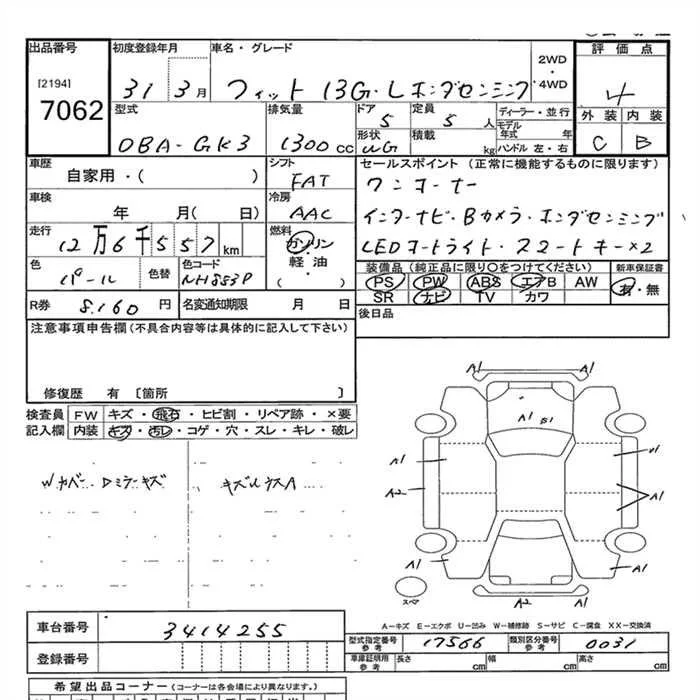 出品番号
[2194]
7062
初度登録年月
31 3月
車名・グレード
フィット 13G・L ホンダセンシング
2WD
・
4WD
評価点
4
外装 内装
C B
型式
DBA-GK3
排気量
1300 cc
ドア
5
定員
5 人
ディーラー・並行
モデル年式 年
ハンドル 左・右
形状
UG
積載
kg
車歴
自家用・( )
シフト
FAT
セールスポイント (正常に機能するものに限ります)
ワンオーナー
インターナビ・Bカメラ・ホンダセンシング
LEDオートライト・スマートキー×2
車検
年 月(日)
冷房
AAC
走行
12万6千557km
燃料
ガソリン
軽・油
( ・ )
色
パール
色替
色コード
NH883P
装備品 (純正品に限り○をつけてください)
PS PW ABS エアB AW
SR ナビ TV カワ
新車保証書
有・無
R券
8,160 円
名変通知期限 月 日
後日品
注意事項申告欄(不具合内容等は具体的に記入して下さい)
修復歴 有 〔箇所 〕
検査員記入欄
FW キズ・飛石・ヒビ割・リペア跡・×要
内装 キズ・汚レ・コゲ・穴・スレ・キレ・破レ
Wカバー・Dミラーキズ
A1 A1
A1 B1
A1
A2
A1
A1 A1
A2 A1
スペア
A−キズ E−エクボ U−凹み W−補修跡 S−サビ C−腐食 XX−交換済
車台番号
3414255
登録番号
型式指定番号
参考
17566
類別区分番号
参考
0031
車庫証明用
参考
長さ cm 幅 cm 高さ cm
希望出品コーナー (コーナーは各会場により異なります。)